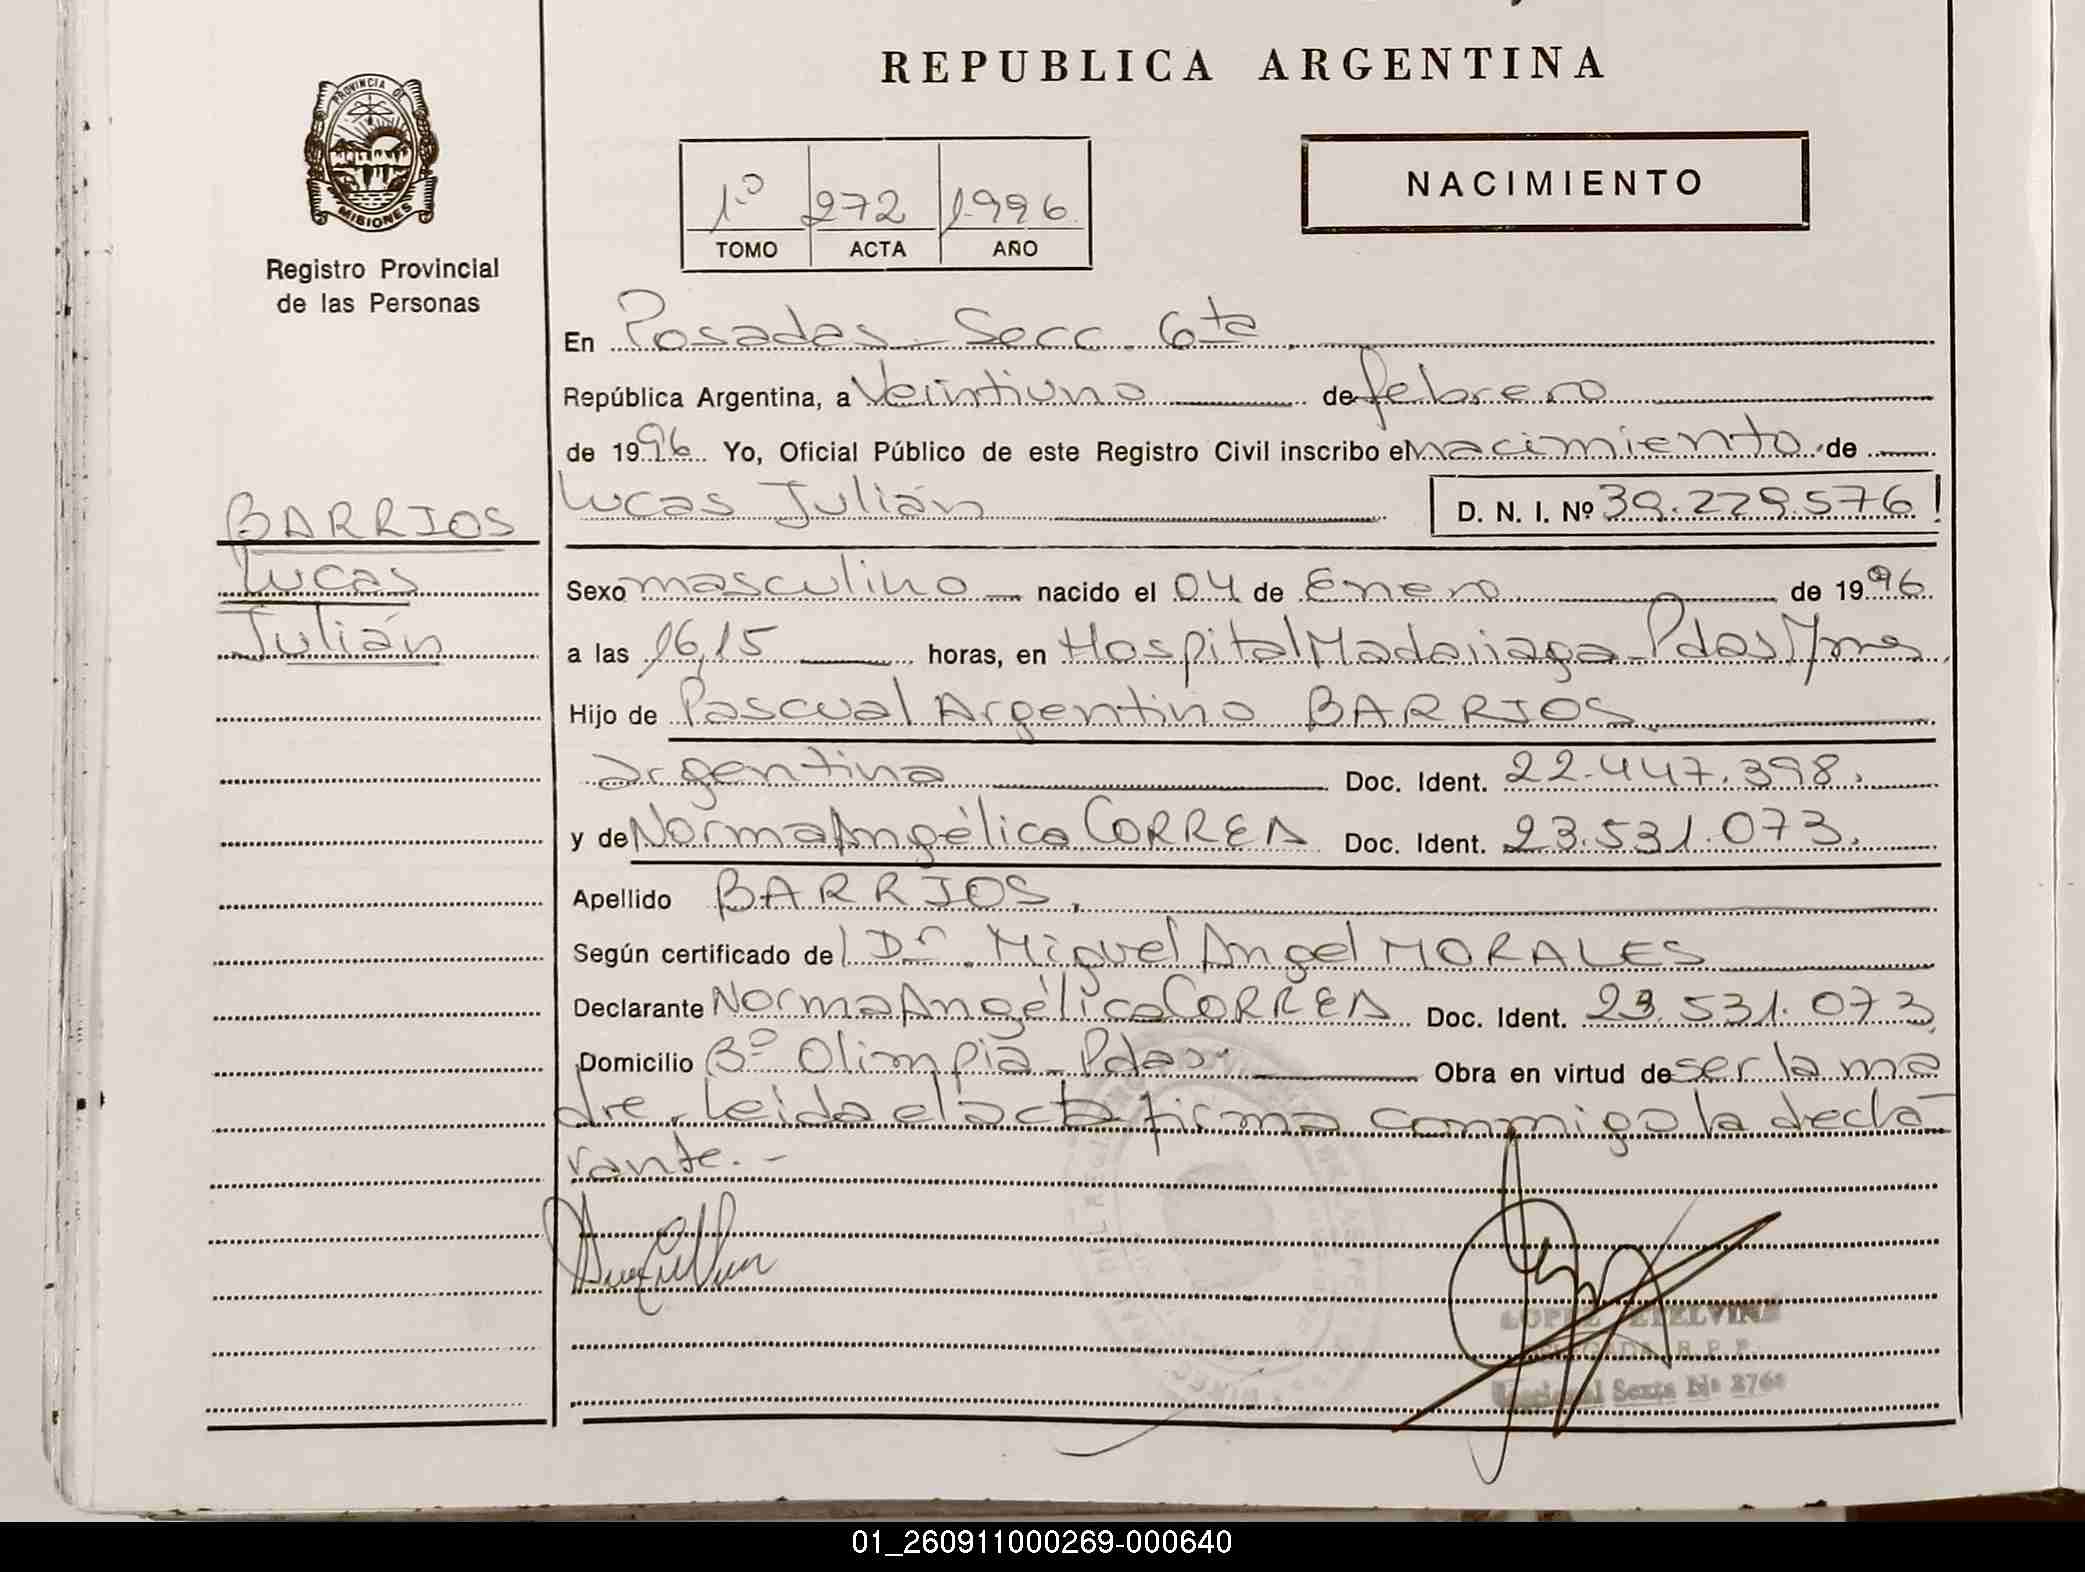 REPUBLICA ARGENTINA
PROVINCIA DE
MISIONES
Registro Provincial
de las Personas
1º 272 1996
TOMO ACTA AÑO
NACIMIENTO
En Posadas - Secc. 6ta.
República Argentina, a Veintiuno de febrero
de 1996 Yo, Oficial Público de este Registro Civil inscribo el nacimiento de
BARRIOS
Lucas
Julián
Lucas Julián D. N. I. Nº 39.229.576
Sexo masculino nacido el 04 de Enero de 1996
a las 16,15 horas, en Hospital Madariaga - Pdas Mnes
Hijo de Pascual Argentino BARRIOS
argentina Doc. Ident. 22.447.398.
y de Norma Angélica CORREA Doc. Ident. 23.531.073.
Apellido BARRIOS.
Según certificado del Dr. Miguel Angel MORALES
Declarante Norma Angélica CORREA Doc. Ident. 23.531.073
Domicilio Bº Olimpia - Pdas. Obra en virtud de ser la ma
dre. Leida el acta firma conmigo la decla-
rante.-
LOPEZ ETELVINA
DELEGADA R. P. P.
Seccional Sexta Nº
01_260911000269-000640